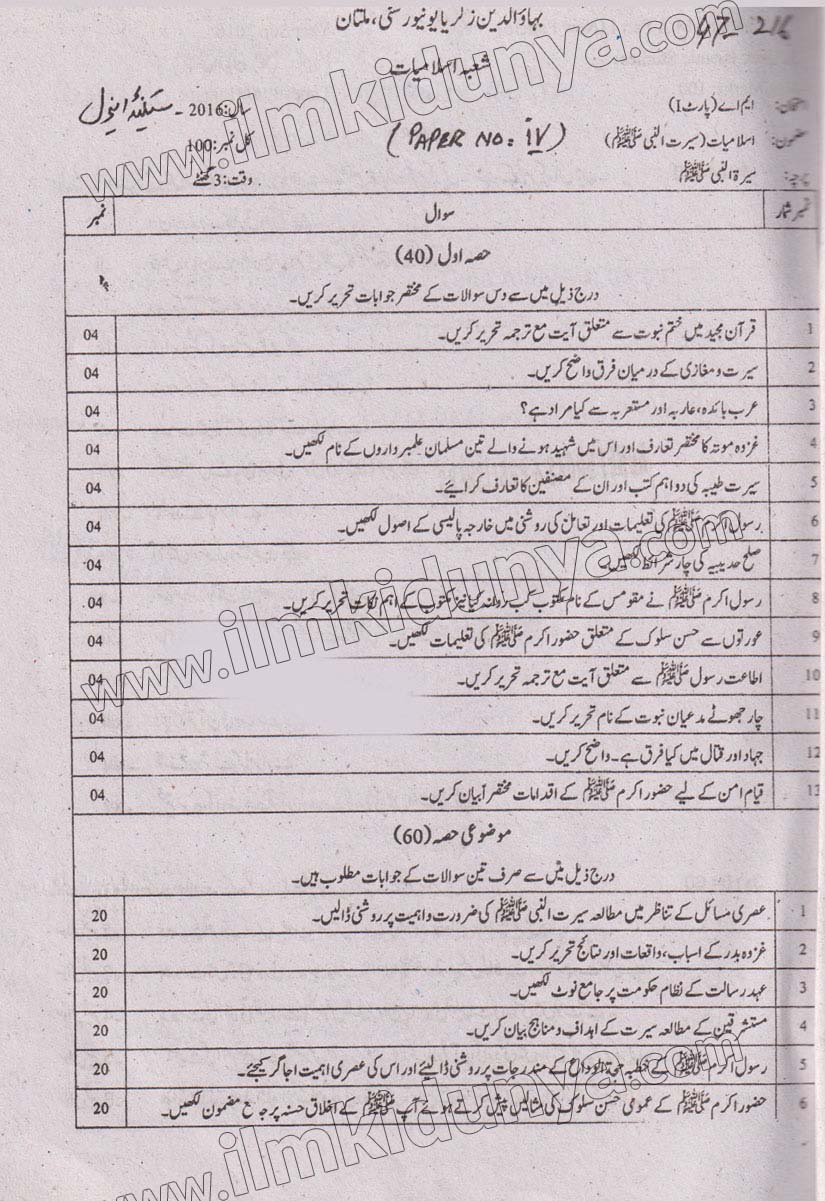 بہاؤالدین زکریا یونیورسٹی، ملتان
شعبہ اسلامیات
امتحان: ایم اے (پارٹ I)
سال: 2016ء - سیکنڈ اینول
مضمون: اسلامیات (سیرت النبی ﷺ)
(PAPER NO: IV)
کل نمبر: 100
پرچہ: سیرۃ النبی ﷺ
وقت: 3 گھنٹے
نمبر شمار سوال نمبر
حصہ اول (40)
درج ذیل میں سے دس سوالات کے مختصر جوابات تحریر کریں۔
1 قرآن مجید میں ختم نبوت سے متعلق آیت مع ترجمہ تحریر کریں۔ 04
2 سیرت و مغازی کے درمیان فرق واضح کریں۔ 04
3 عرب بائدہ، عاربہ اور مستعربہ سے کیا مراد ہے؟ 04
4 غزوہ موتہ کا مختصر تعارف اور اس میں شہید ہونے والے تین مسلمان علمبرداروں کے نام لکھیں۔ 04
5 سیرت طیبہ کی دو اہم کتب اور ان کے مصنفین کا تعارف کرائیے۔ 04
6 رسول اکرم ﷺ کی تعلیمات اور تعامل کی روشنی میں خارجہ پالیسی کے اصول لکھیں۔ 04
7 صلح حدیبیہ کی چار شرائط لکھیں۔ 04
8 رسول اکرم ﷺ نے مقوقس کے نام مکتوب کب روانہ کیا نیز مکتوب کے اہم نکات تحریر کریں۔ 04
9 عورتوں سے حسن سلوک کے متعلق حضور اکرم ﷺ کی تعلیمات لکھیں۔ 04
10 اطاعت رسول ﷺ سے متعلق آیت مع ترجمہ تحریر کریں۔ 04
11 چار جھوٹے مدعیان نبوت کے نام تحریر کریں۔ 04
12 جہاد اور قتال میں کیا فرق ہے۔ واضح کریں۔ 04
13 قیام امن کے لیے حضور اکرم ﷺ کے اقدامات مختصراً بیان کریں۔ 04
موضوعی حصہ (60)
درج ذیل میں سے صرف تین سوالات کے جوابات مطلوب ہیں۔
1 عصری مسائل کے تناظر میں مطالعہ سیرت النبی ﷺ کی ضرورت و اہمیت پر روشنی ڈالیں۔ 20
2 غزوہ بدر کے اسباب، واقعات اور نتائج تحریر کریں۔ 20
3 عہد رسالت کے نظام حکومت پر جامع نوٹ لکھیں۔ 20
4 مستشرقین کے مطالعہ سیرت کے اہداف و مناہج بیان کریں۔ 20
5 رسول اکرم ﷺ کے خطبہ حجۃ الوداع کے مندرجات پر روشنی ڈالیئے اور اس کی عصری اہمیت اجاگر کیجئے۔ 20
6 حضور اکرم ﷺ کے عمومی حسن سلوک کی مثالیں پیش کرتے ہوئے آپ ﷺ کے اخلاق حسنہ پر جامع مضمون لکھیں۔ 20
www.ilmkidunya.com
www.ilmkidunya.com
www.ilmkidunya.com